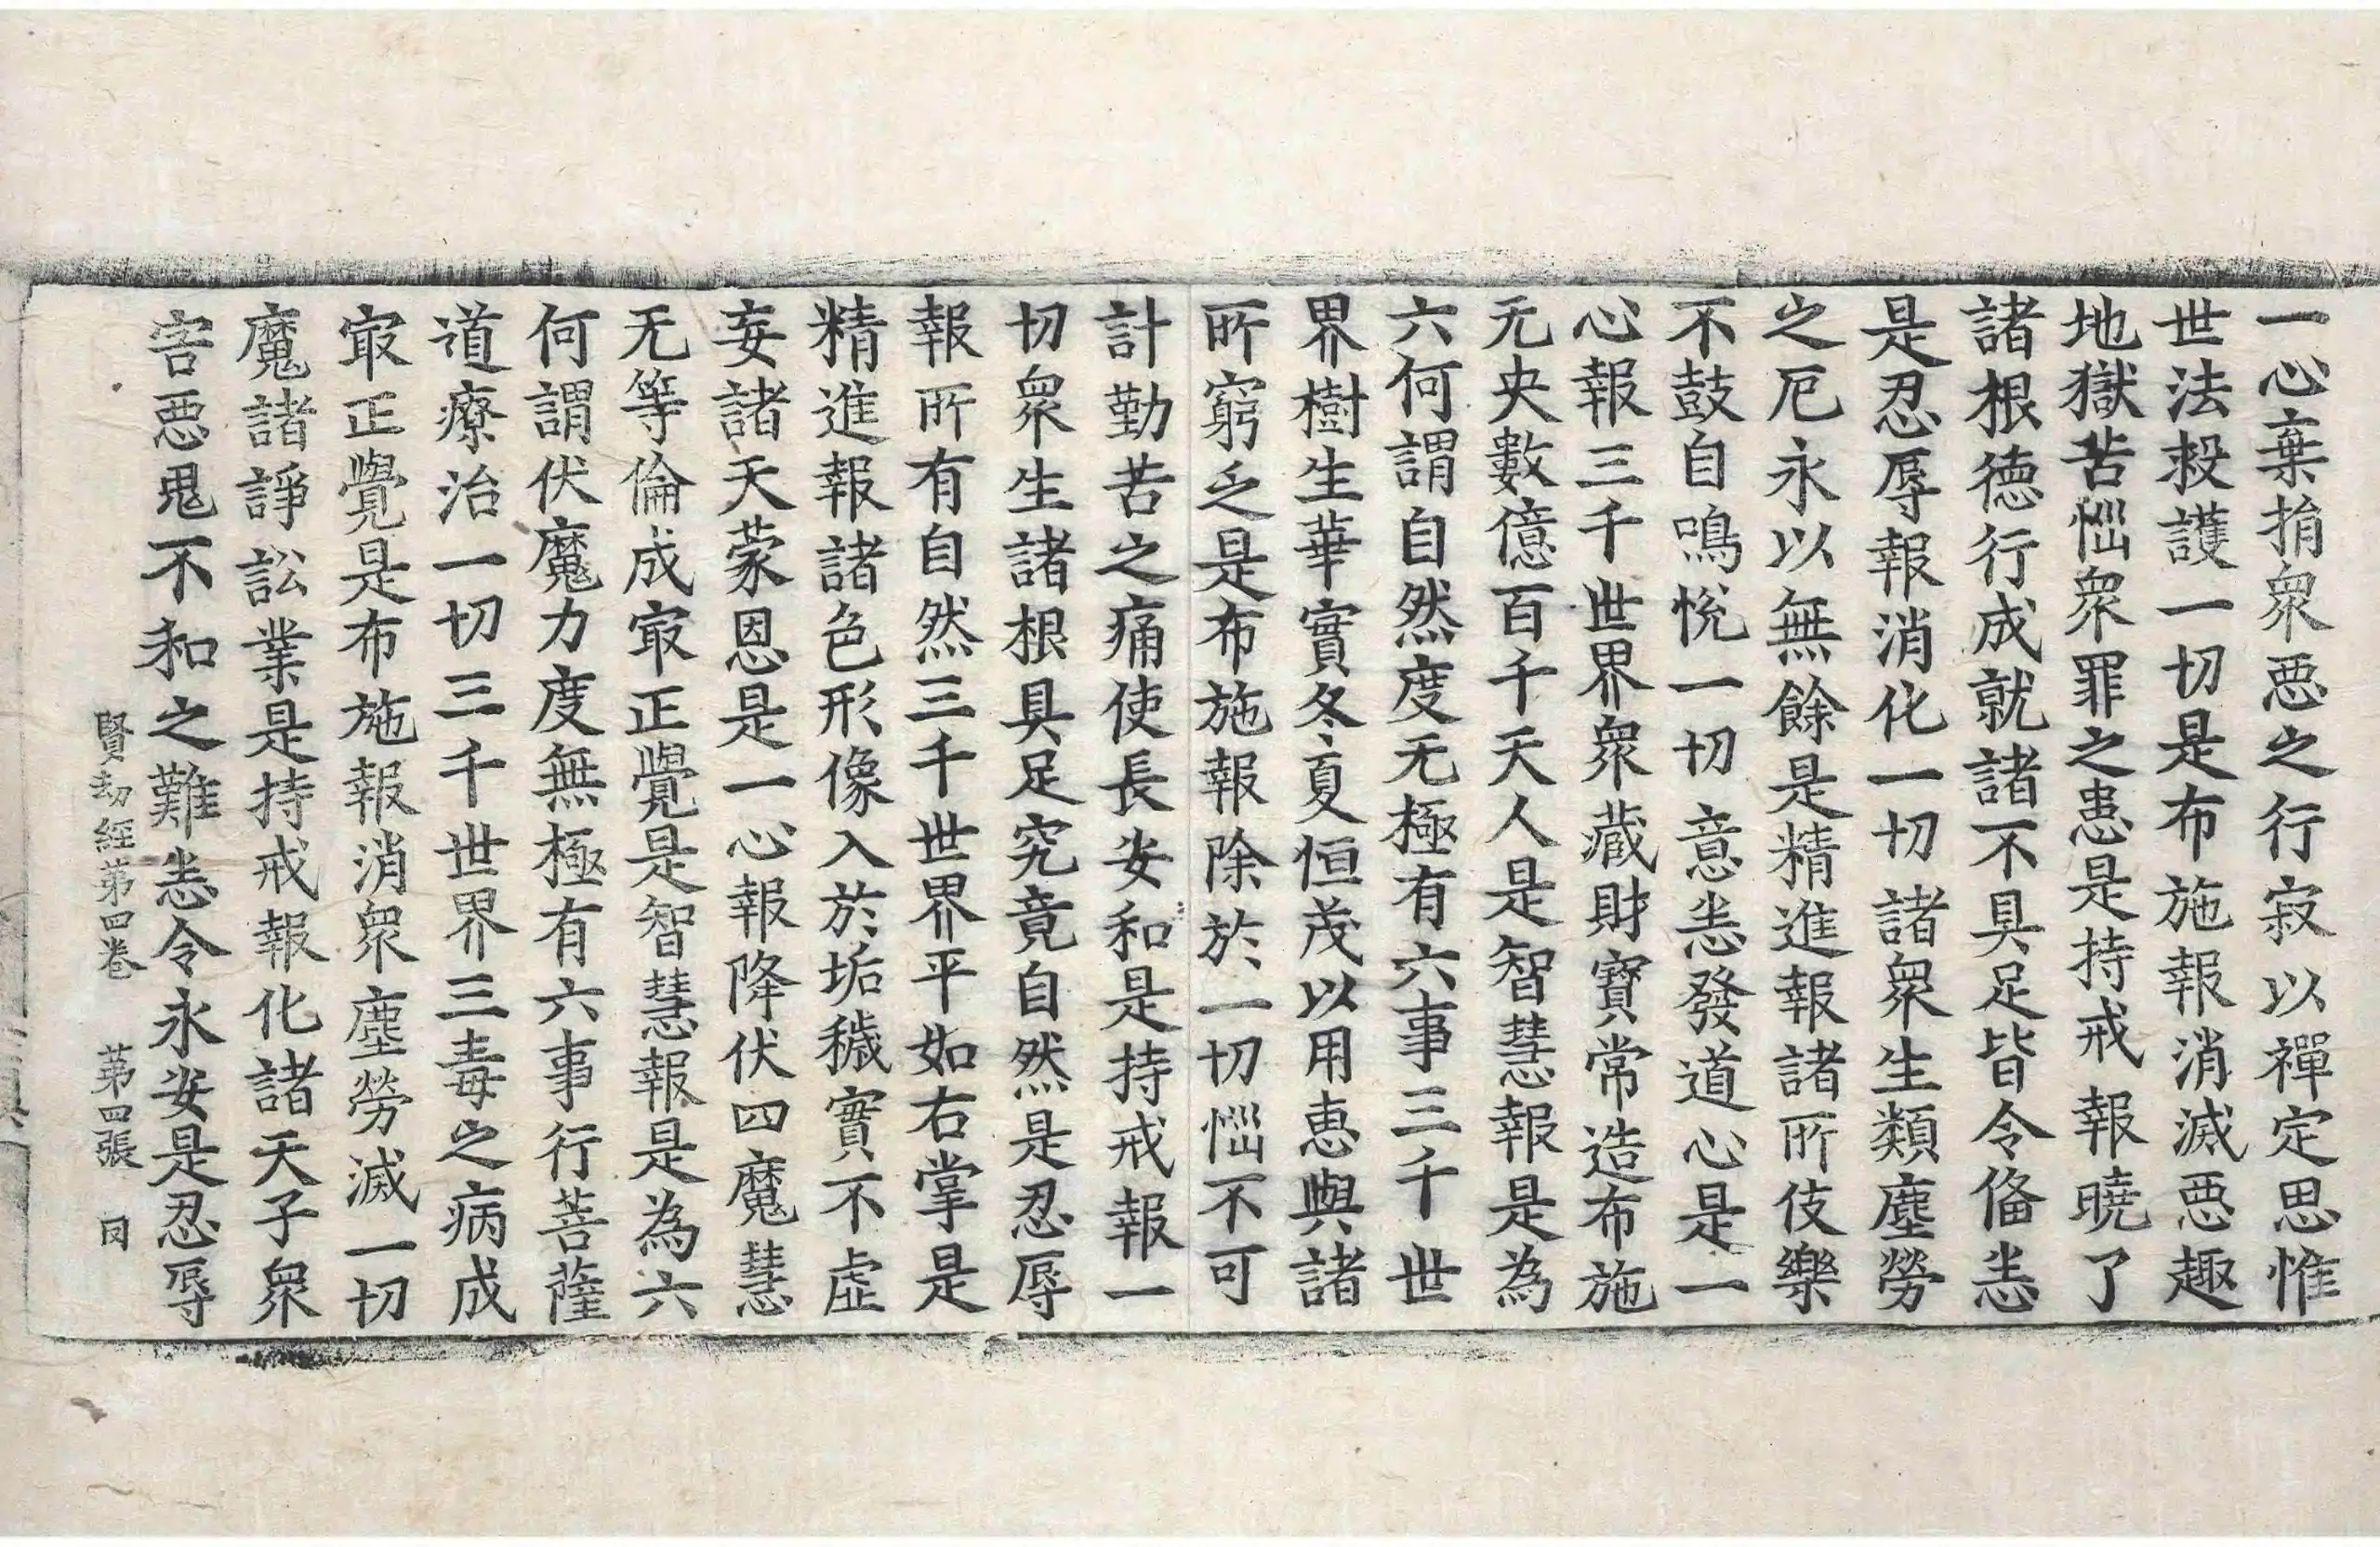 一心棄捐衆惡之行寂以禪定思惟
世法救護一切是布施報消滅惡趣
地獄苦惱衆罪之患是持戒報曉了
諸根德行成就諸不具足皆令俻恙
是忍辱報消化一切諸衆生類塵勞
之厄永以無餘是精進報諸所伎樂
不鼓自鳴悅一切意恙發道心是一
心報三千世界衆藏財寶常造布施
无央數億百千天人是智慧報是為
六何謂自然度无極有六事三千世
界樹生華實冬夏恒茂以用惠與諸
所窮乏是布施報除於一切惱不可
計勤苦之痛使長安和是持戒報一
切衆生諸根具足究竟自然是忍辱
報所有自然三千世界平如右掌是
精進報諸色形像入於垢穢實不虛
妄諸天蒙恩是一心報降伏四魔慧
无等倫成㝡正覺是智慧報是為六
何謂伏魔力度無極有六事行菩薩
道療治一切三千世界三毒之病成
㝡正覺是布施報消衆塵勞滅一切
魔諸諍訟業是持戒報化諸天子衆
害惡鬼不和之難恙令永安是忍辱
賢劫經第四卷 第四張 因